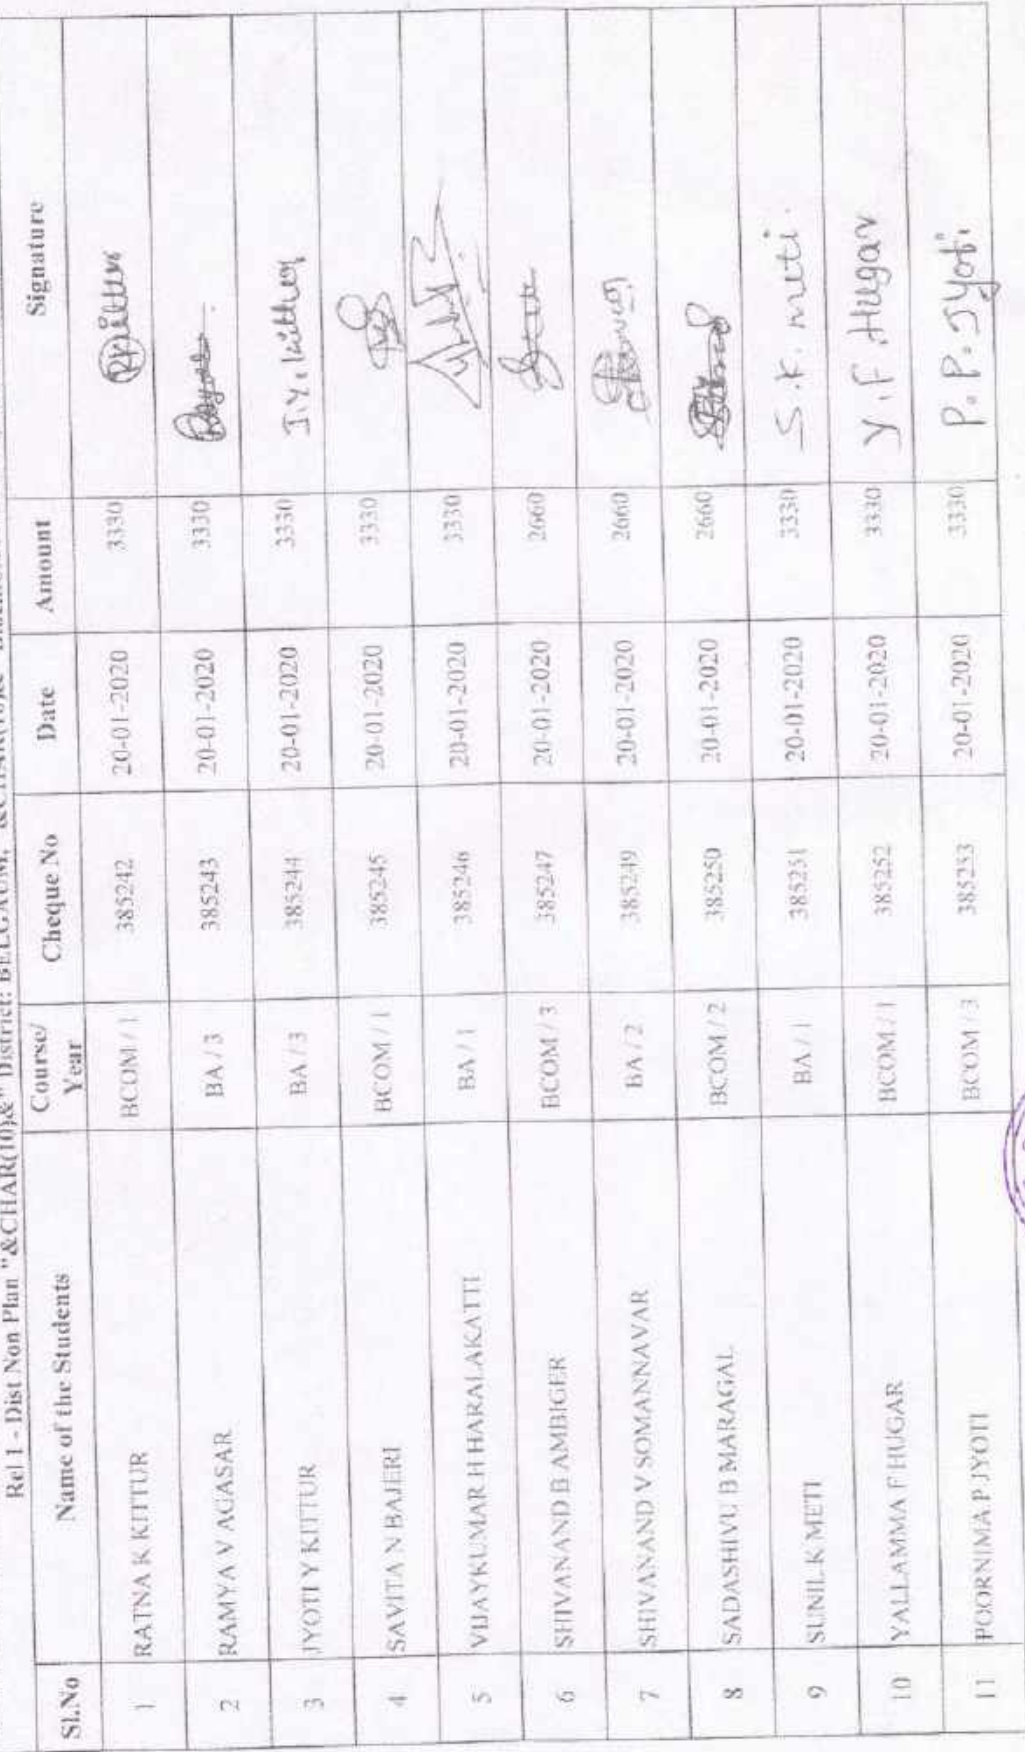 Rel 1 - Dist Non Plan "&CHAR(10)&" District: BELGAUM, "&CHAR(10)&"
Sl.No Name of the Students Course/ Year Cheque No Date Amount Signature
1 RATNA K KITTUR BCOM / 1 385242 20-01-2020 3330
2 RAMYA V AGASAR BA / 3 385243 20-01-2020 3330
3 JYOTI Y KITTUR BA / 3 385244 20-01-2020 3330 J.Y. kittur
4 SAVITA N BAJERI BCOM / 1 385245 20-01-2020 3330
5 VIJAYKUMAR H HARALAKATTI BA / 1 385246 20-01-2020 3330
6 SHIVANAND B AMBIGER BCOM / 3 385247 20-01-2020 2660
7 SHIVANAND V SOMANNAVAR BA / 2 385249 20-01-2020 2660
8 SADASHIVU B MARAGAL BCOM / 2 385250 20-01-2020 2660
9 SUNIL K METI BA / 1 385251 20-01-2020 3330 S.K. meti.
10 YALLAMMA F HUGAR BCOM / 1 385252 20-01-2020 3330 Y.F. Hugar
11 POORNIMA P JYOTI BCOM / 3 385253 20-01-2020 3330 P.P. Jyoti